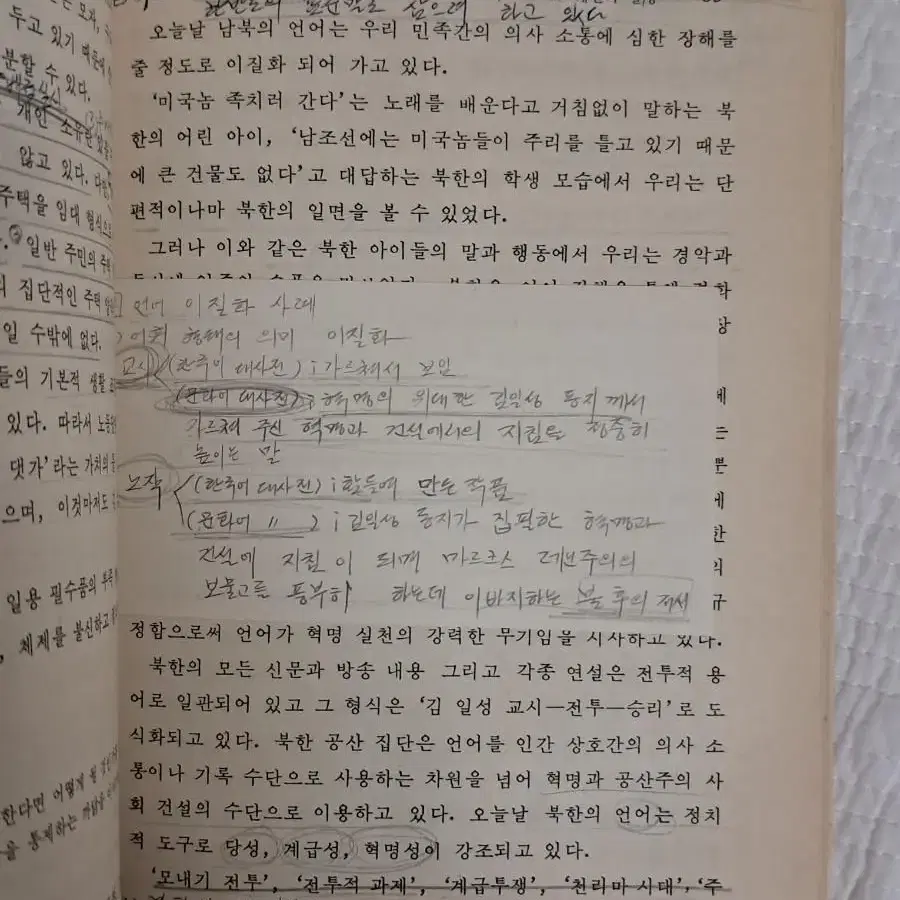 두고 있기 때문에
분할 수 있다.
개인 소유한
않고 있다.
주택을 임대 형식으로
일반 주민의 주택
집단적인 주택
일 수밖에 없다.
들의 기본적 생활
있다. 따라서 노동
댓가'라는 가치의
으며, 이것마저도
일용 필수품의 부족
체제를 불신하고
한다면 어떻게 될 것인
을 통제하는
삼으려 하고 있다
오늘날 남북의 언어는 우리 민족간의 의사 소통에 심한 장해를
줄 정도로 이질화 되어 가고 있다.
'미국놈 족치러 간다'는 노래를 배운다고 거침없이 말하는 북
한의 어린 아이, '남조선에는 미국놈들이 주리를 틀고 있기 때문
에 큰 건물도 없다'고 대답하는 북한의 학생 모습에서 우리는 단
편적이나마 북한의 일면을 볼 수 있었다.
그러나 이와 같은 북한 아이들의 말과 행동에서 우리는 경악과
언어 이질화 사례
) 어휘 형태의 의미 이질화
교시 (한국어 대사전) ; 가르쳐서 보임
(문화어 대사전) ; 혁명의 위대한 김일성 동지께서
가르쳐 주신 혁명과 건설에서의 지침을 정중히
높이는 말
노작 (한국어 대사전) ; 힘들여 만든 작품
(문화어 〃 ) ; 김일성 동지가 집필한 혁명과
건설에 지침이 되며 마르크스 레닌주의의
보물고를 풍부히 하는데 이바지하는 불후의 저서
당
에
는
뿐
에
한
의
규
정함으로써 언어가 혁명 실천의 강력한 무기임을 시사하고 있다.
북한의 모든 신문과 방송 내용 그리고 각종 연설은 전투적 용
어로 일관되어 있고 그 형식은 '김 일성 교시—전투—승리'로 도
식화되고 있다. 북한 공산 집단은 언어를 인간 상호간의 의사 소
통이나 기록 수단으로 사용하는 차원을 넘어 혁명과 공산주의 사
회 건설의 수단으로 이용하고 있다. 오늘날 북한의 언어는 정치
적 도구로 당성, 계급성, 혁명성이 강조되고 있다.
'모내기 전투', '전투적 과제', '계급투쟁', '천리마 시대', '주